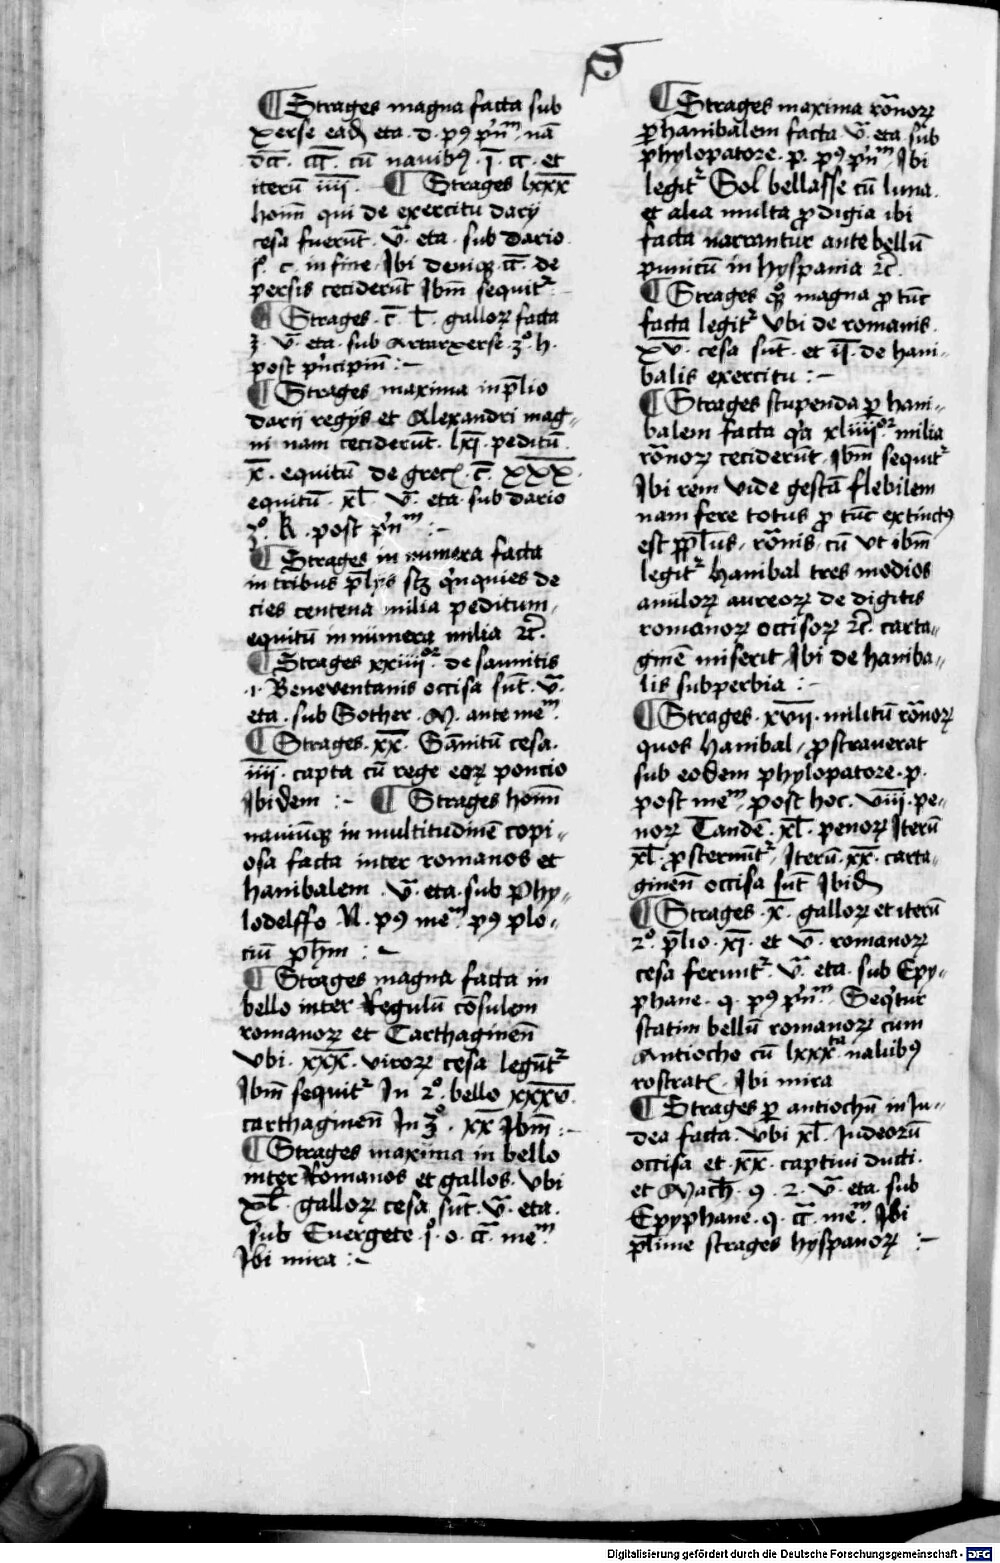 S
¶ Strages magna facta sub
xerse ead eta. d. pꝯ p'nᵐ. nā
d̅c̅c̅. c̅c̅c̅. cū nauibꝯ. ı̅. c̅c̅. et
iterū ı̅ı̅ı̅ı̅. ¶ Strages l̅x̅x̅x̅
hoīm qui de exercitu darij
cesa fuerūt. v̄. eta. sub dario.
c. in fine. Ibi deniqꝫ c̅c̅. de
persis ceciderūt Ibm̄ sequitᷣ :
¶ Strages. c̅. l̅. galloꝝ facta
3. v̄. eta. sub Artarxerse. 3º. h.
post p'ncipiū : ~
¶ Strages maxima in p̄lio
darij regijs et Alexandri mag-
ni nam ceciderūt. peditū
x̅. equitū de grecꝭ. c̅. x̅x̅x̅.
equitū. x̅l̅. v̄. eta. sub dario
3º. k. post p'nᵐ : ~
¶ Strages in numera facta
in tribus p̄lijs scꝫ q'nquies de
cies centena milia peditum,
equitū innumera milia ꝛc̄.
¶ Strages xxiiiiºʳ de samnitis
.ı. Beneventanis occisa sūt. v̄.
eta. sub Sother. M. ante meᵐ.
¶ Strages. x̅x̅. Sānitū cesa.
ı̅ı̅ı̅ı̅. capta cū rege eoꝝ poncio
Ibidem : ~ ¶ Strages hoīm
nauiūqꝫ in multitudinē copi-
osa facta inter romanos et
hanibalem. v̄. eta. sub Phy-
lodelffo N. pꝯ meᵐ. pꝯ plo-
p̄hm : ~
¶ Strages magna facta in
bello inter Regulū cōsulem
romanoꝝ et Carthaginen̄
vbi. x̅x̅x̅. viroꝝ cesa legūtᷣ
Ibm̄ sequitᷣ In 2º. bello x̅x̅x̅v̅.
carthaginen̄ In 3º. x̅x̅ Ibm̄ : ~
¶ Strages maxima in bello
inter Romanos et gallos. vbi
x̅l̅. galloꝝ cesa sūt. v̄. eta.
sub Euergete. o. c̅c̅. meᵐ.
Ibi mira : ~
¶ Strages maxima rōnoꝝ
ꝑ hanibalem facta. v̄. eta. sub
phylopatore. p. pꝯ p'nᵐ. Ibi
legitᷣ Sol bellasse cū luna.
et alia multa ꝓdigia ibi
facta narrantur ante bellū
punicū in hyspania ꝛc̄.
¶ Strages qꝫ magna ꝓ tūc
facta legitᷣ vbi de romanis.
x̅v̅. cesa sūt. et ı̅ı̅. de hani-
balis exercitu : ~
¶ Strages stupenda ꝑ hani-
balem facta q'a xliiiiºʳ milia
rōnoꝝ ceciderūt. Ibm̄ sequitᷣ
Ibi rem vide gestū flebilem
nam fere totus ꝓ tūc extinctꝯ
est ꝓpl̄us, rōnis, cū vt ibm̄
legitᷣ hanibal tres modios
anuloꝝ aureoꝝ de digitis
romanoꝝ occisoꝝ ꝛc̄. carta-
ginē miserit. Ibi de haniba-
lis subperbia : ~
¶ Strages. x̅v̅ı̅ı̅. militū rōnoꝝ
quos hanibal, ꝓstrauerat
sub eodem phylopatore. p.
post meᵐ. post hoc. v̅ı̅ı̅ı̅. pe-
noꝝ Tandē. x̅l̅. penoꝝ Iterū
x̅l̅. ꝓsternūtᷣ, Iterū. x̅x̅. carta-
ginen̄ occisa sūt Ibid
¶ Strages. x̅. galloꝝ et iterū
2º. p̄lio. x̅ı̅. et v̄. romanoꝝ
cesa feruntᷣ. v̄. eta. sub Epy-
phane. q. pꝯ p'nᵐ. Seq'tur
statim bellū romanoꝝ cum
Antiocho cū lxxxᵗᵃ. nauibꝯ
rostratꝭ. Ibi mira
¶ Strages ꝑ antiochū in Iu-
dea facta. vbi x̅l̅. Iudeorū
occisa et. x̅x̅. captiui ducti.
et Mach̄. 9. 2. v̄. eta. sub
Epyphane. q. c̅c̅. meᵐ. Ibi
pl̄ime strages hyspanoꝝ : ~
Digitalisierung gefördert durch die Deutsche Forschungsgemeinschaft - DFG